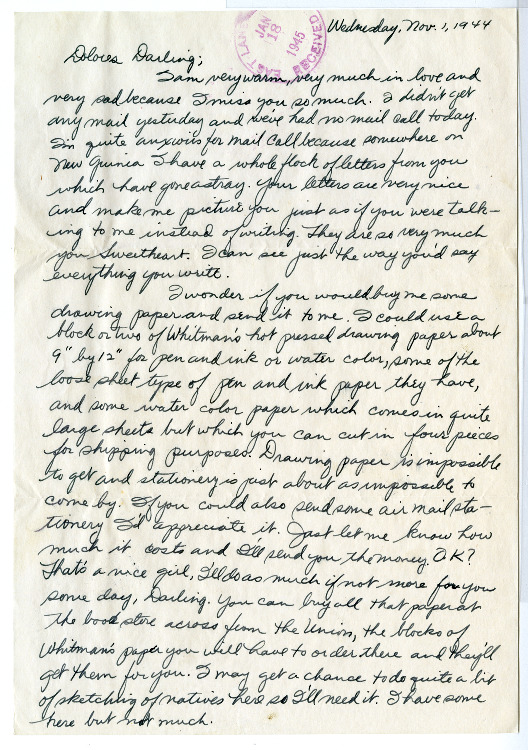 Wednesday, Nov. 1, 1944
EAST LANS
JAN
18
1945
RECEIVED
Dolores Darling;
I am very warm, very much in love and
very sad because I miss you so much. I didn't get
any mail yesterday and we've had no mail call today.
I'm quite anxious for mail call because somewhere on
New Guinea I have a whole flock of letters from you
which have gone astray. Your letters are very nice
and make me picture you just as if you were talk-
ing to me instead of writing. They are so very much
you Sweetheart. I can see just the way you'd say
everything you write.
I wonder if you would buy me some
drawing paper and send it to me. I could use a
block or two of Whitman's hot pressed drawing paper about
9" by 12" for pen and ink or water color, some of the
loose sheet type of pen and ink paper they have,
and some water color paper which comes in quite
large sheets but which you can cut in four pieces
for shipping purposes. Drawing paper is impossible
to get and stationery is just about as impossible to
come by. If you could also send some air mail sta-
tionery I'd appreciate it. Just let me know how
much it costs and I'll send you the money. OK?
That's a nice girl, I'll do as much if not more for you
some day, Darling. You can buy all that paper at
the book store across from the Union, the blocks of
Whitman's paper you will have to order there and they'll
get them for you. I may get a chance to do quite a bit
of sketching of natives here so I'll need it. I have some
here but not much.